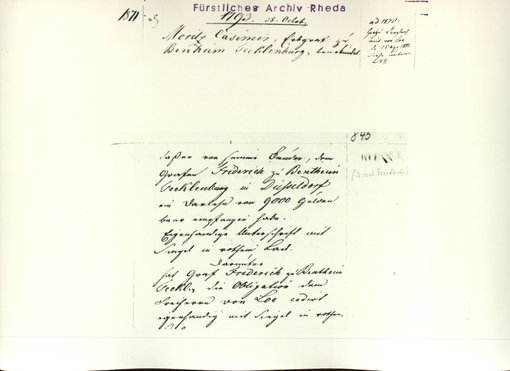 Fürstliches Archiv Rheda
1871
1793. 28. October
Moritz Casimir, Erbgraf zu
Bentheim Tecklenburg, beurkundet
ad 1870.
843
daßer von seinem Bruder, dem
Grafen Frederich zu Bentheim
Tecklenburg in Düsseldorf
ein Darlehn von 9000 Gulden
baar empfangen habe.
Eigenhändige Unterschrift mit
Siegel in rothem Lack.
Darunter
hat Graf Frederich zu Bentheim
Teckl., die Obligation dem
Freiherrn von Loe cedirt
eigenhändig mit Siegel in rothem